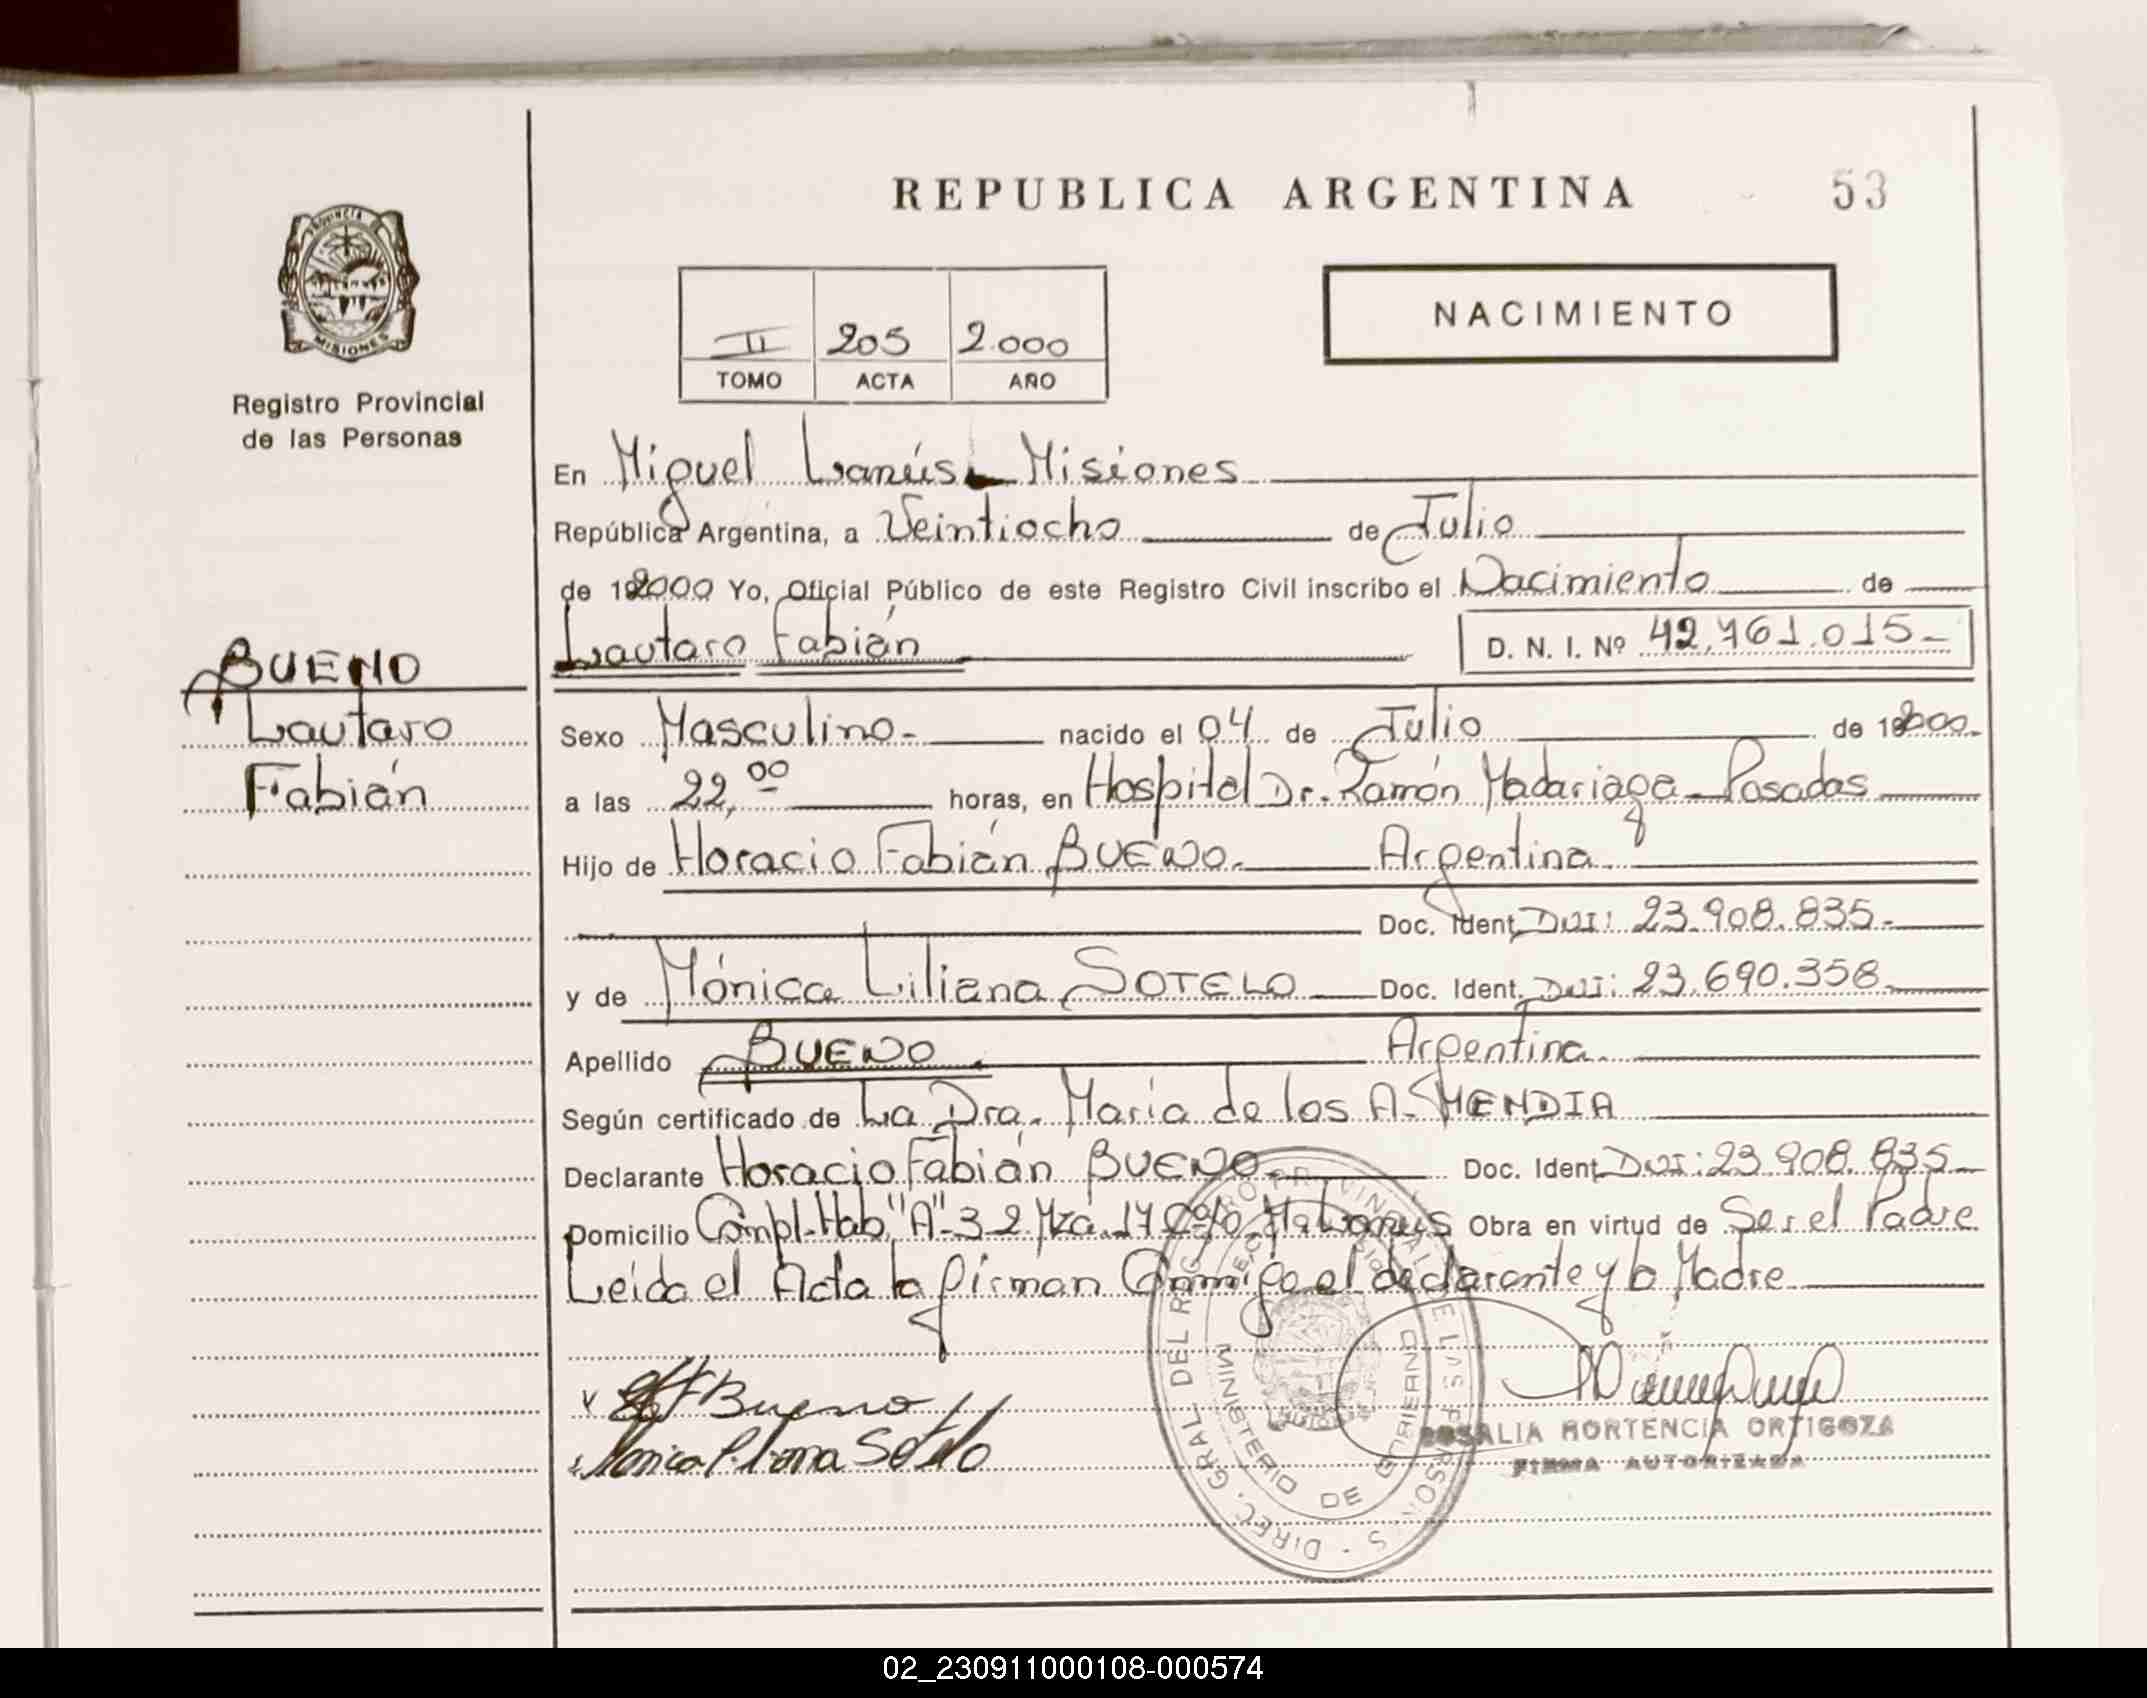 REPUBLICA ARGENTINA
53
PROVINCIA
MISIONES
Registro Provincial
de las Personas
II 205 2.000
TOMO ACTA AÑO
NACIMIENTO
En Miguel Lanús - Misiones
República Argentina, a Veintiocho de Julio
de 2000 Yo, Oficial Público de este Registro Civil inscribo el Nacimiento de
Lautaro Fabián D. N. I. Nº 42.761.015-
BUENO
Lautaro
Fabián
Sexo Masculino.- nacido el 04 de Julio de 2000
a las 22,00 horas, en Hospital Dr. Ramón Madariaga - Posadas
Hijo de Horacio Fabián BUENO.- Argentina
Doc. Ident. DNI: 23.908.835.-
y de Mónica Liliana SOTELO Doc. Ident. DNI: 23.690.358.-
Apellido BUENO Argentina.
Según certificado de La Dra. María de los A. MENDIA
Declarante Horacio Fabián BUENO.- Doc. Ident. DNI: 23.908.835
Domicilio Compl. Hab. "A" 3 2 Mza. 17 Obra en virtud de Ser el Padre
Leída el Acta la firman Conmigo el declarante y la Madre
Bueno
Monica Liliana Sotelo
ROSALIA HORTENCIA ORTIGOZA
FIRMA AUTORIZADA
DIREC. GRAL. DEL REGISTRO PROVINCIAL DE LAS PERSONAS
MINISTERIO DE GOBIERNO
02_230911000108-000574